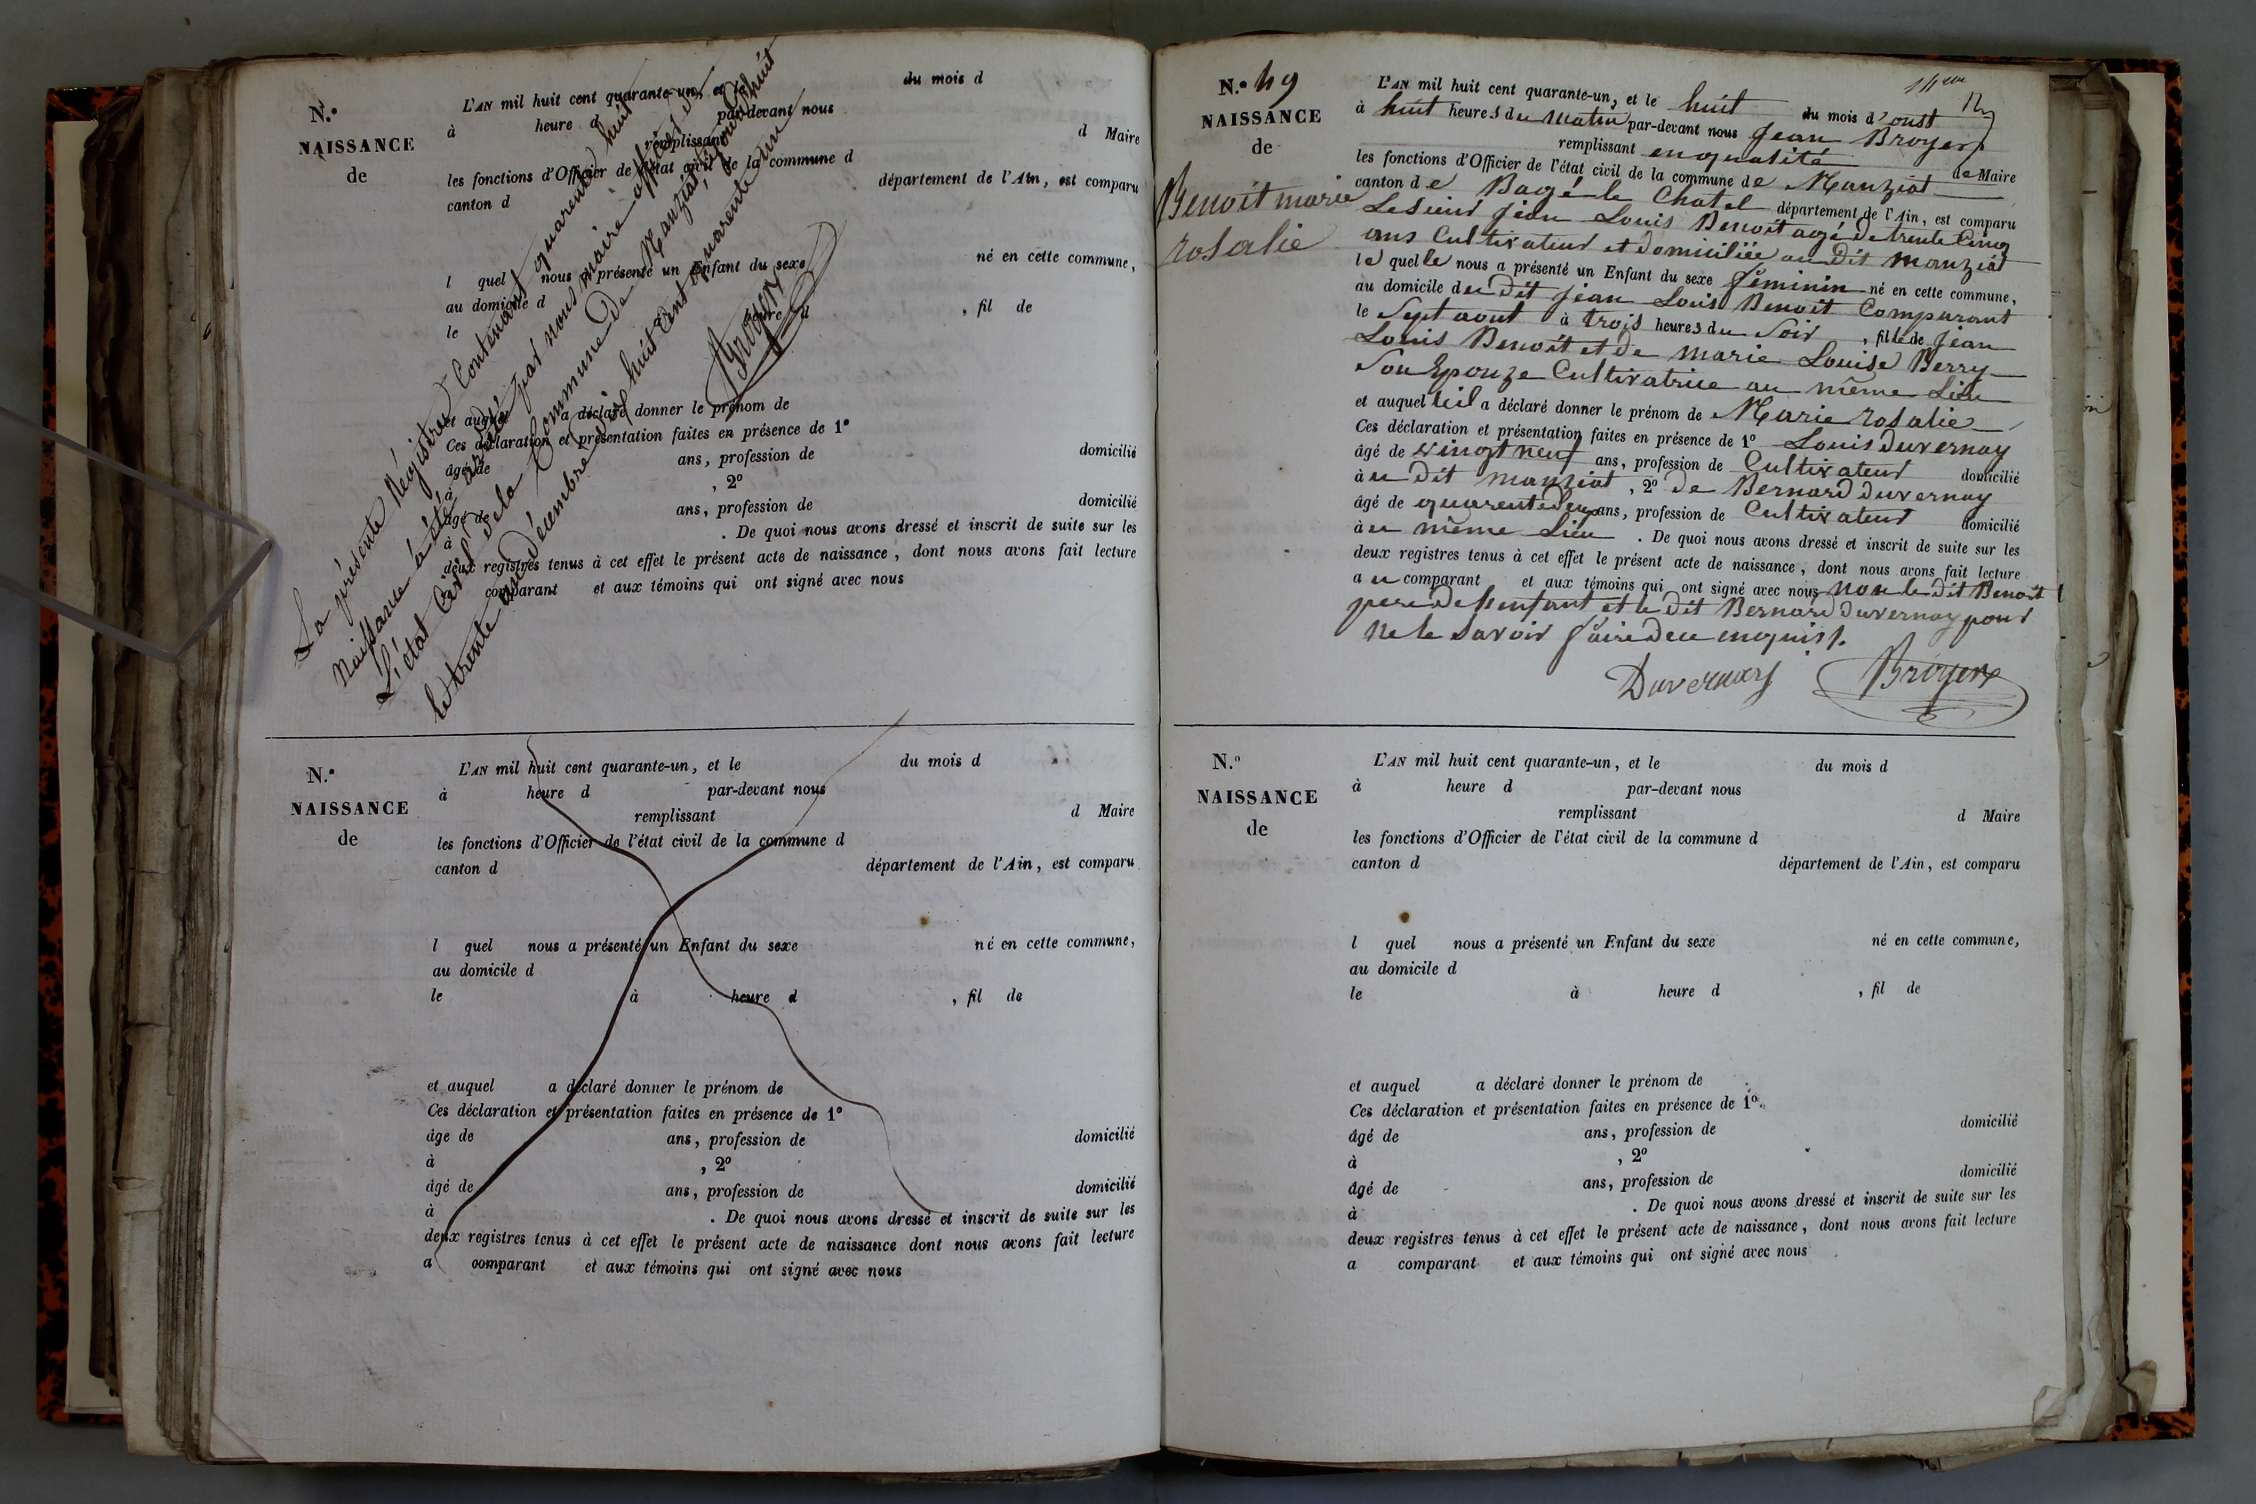 N.o
NAISSANCE
de
L'AN mil huit cent quarante-un, et le du mois d
à heure d par-devant nous
remplissant d Maire
les fonctions d'Officier de l'état civil de la commune d
canton d département de l'Ain, est comparu
l quel nous a présenté un Enfant du sexe né en cette commune,
au domicile d
le heure d , fil de
et auquel a déclaré donner le prénom de
Ces déclaration et présentation faites en présence de 1o
âgé de ans, profession de domicilié
à , 2o
âgé de ans, profession de domicilié
à . De quoi nous avons dressé et inscrit de suite sur les
deux registres tenus à cet effet le présent acte de naissance, dont nous avons fait lecture
comparant et aux témoins qui ont signé avec nous
La présente Régistre Contenant quarente huit
Naissance à été par nous maire officier de
L'état Civil de la Commune de Manziat, ce jourd'huit
le trente un décembre mil huit Cent quarente un
Broyer
N.o
NAISSANCE
de
L'AN mil huit cent quarante-un, et le du mois d
à heure d par-devant nous
remplissant d Maire
les fonctions d'Officier de l'état civil de la commune d
canton d département de l'Ain, est comparu
l quel nous a présenté un Enfant du sexe né en cette commune,
au domicile d
le à heure d , fil de
et auquel a déclaré donner le prénom de
Ces déclaration et présentation faites en présence de 1o
âge de ans, profession de domicilié
à , 2o
âgé de ans, profession de domicilié
à . De quoi nous avons dressé et inscrit de suite sur les
deux registres tenus à cet effet le présent acte de naissance dont nous avons fait lecture
a comparant et aux témoins qui ont signé avec nous
N.o 49
NAISSANCE
de
Benoit marie
rosalie
L'AN mil huit cent quarante-un, et le huit du mois d'oust
à huit heures du matin par-devant nous Jean Broyer
remplissant en qualité de Maire
les fonctions d'Officier de l'état civil de la commune de Manziat
canton de Bagé le Chatel département de l'Ain, est comparu
Le sieur jean Louis Benoit agé de trente Cinq
ans Cultivateur et domiciliée au dit manziat
le quelle nous a présenté un Enfant du sexe féminin né en cette commune,
au domicile du dit jean Louis Benoit Comparant
le Sept aout à trois heures du Soir , fille de jean
Louis Benoit et de marie Louise Berry
Son Epouze Cultivatrice au même Lieu
et auquel il a déclaré donner le prénom de Marie rosalie
Ces déclaration et présentation faites en présence de 1o Louis duvernay
âgé de vingt neuf ans, profession de Cultivateur domicilié
à u dit manziat , 2o de Bernard duvernay
âgé de quarente deux ans, profession de Cultivateur domicilié
à u même Lieu . De quoi nous avons dressé et inscrit de suite sur les
deux registres tenus à cet effet le présent acte de naissance, dont nous avons fait lecture
a u comparant et aux témoins qui ont signé avec nous non le dit Benoit
pere de l'enfant et le dit Bernard duvernay pour
ne le savoir faire de ce enquis.
Duvernay Broyer
N.o
NAISSANCE
de
L'AN mil huit cent quarante-un, et le du mois d
à heure d par-devant nous
remplissant d Maire
les fonctions d'Officier de l'état civil de la commune d
canton d département de l'Ain, est comparu
l quel nous a présenté un Enfant du sexe né en cette commune,
au domicile d
le à heure d , fil de
et auquel a déclaré donner le prénom de
Ces déclaration et présentation faites en présence de 1o
âgé de ans, profession de domicilié
à , 2o
âgé de ans, profession de domicilié
à . De quoi nous avons dressé et inscrit de suite sur les
deux registres tenus à cet effet le présent acte de naissance, dont nous avons fait lecture
a comparant et aux témoins qui ont signé avec nous